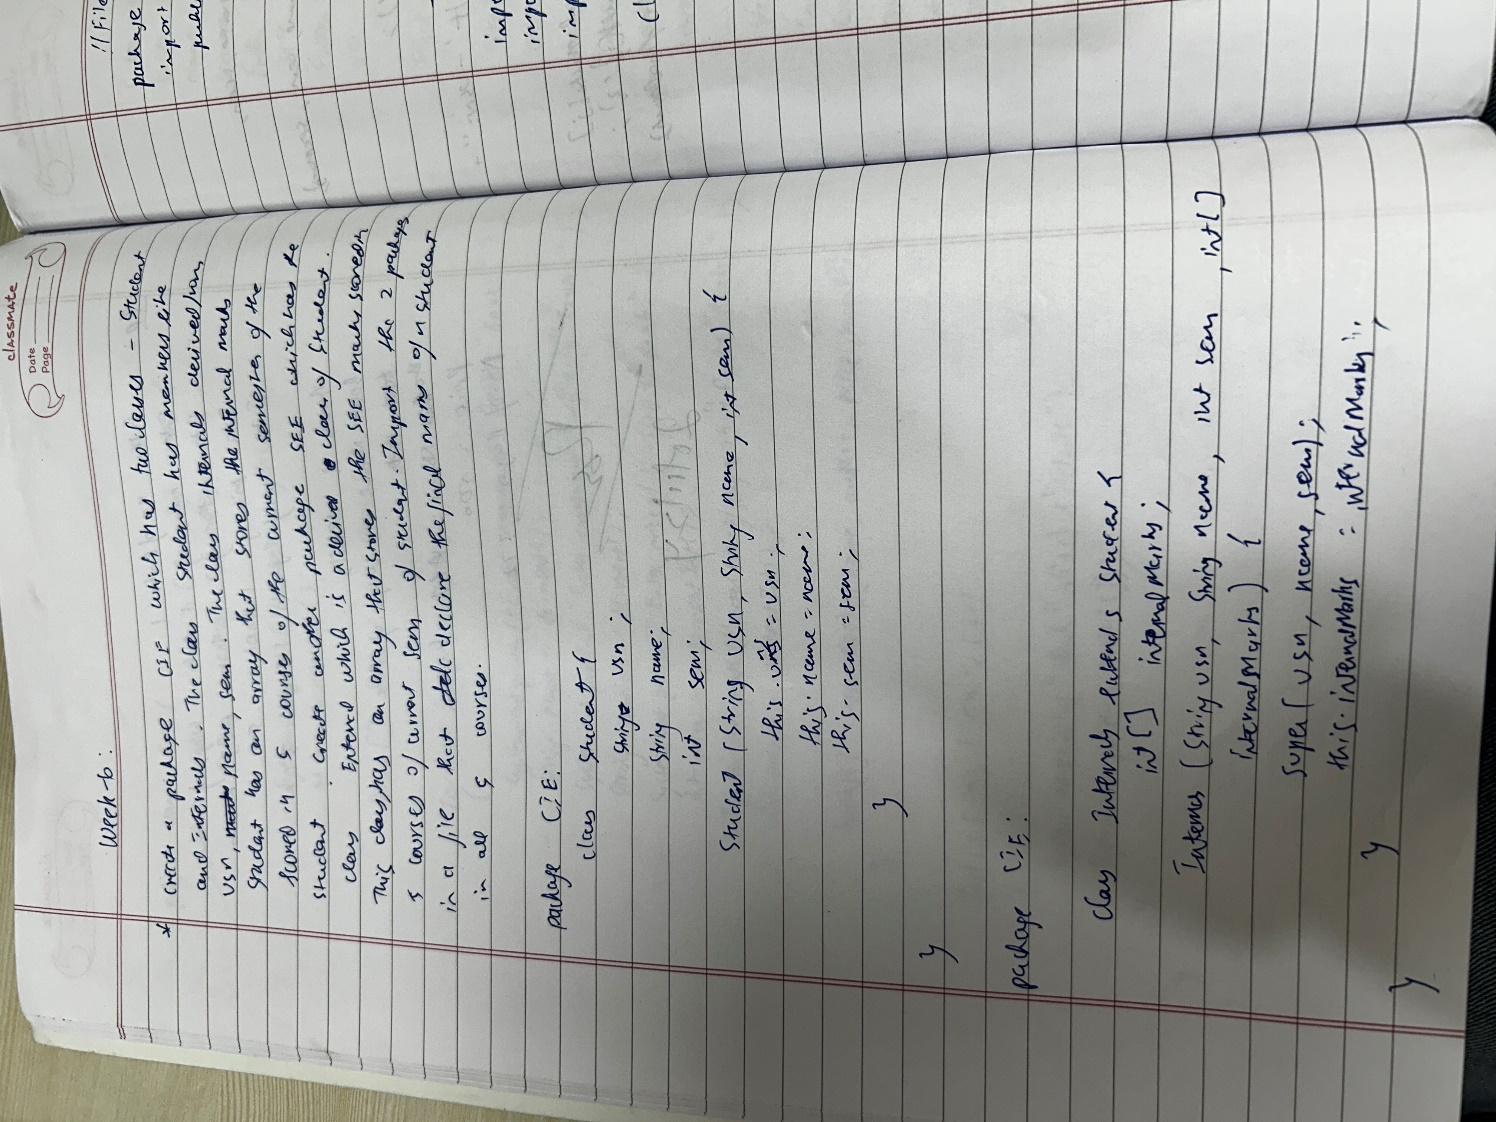 classmate
Date
Page
Week-6:
* create a package CIE which has two classes - Student
and Internals. The class Student has members like
usn, name, sem. The class internals derived from
student has an array that stores the internal marks
scored in 5 courses of the current semester of the
student. create another package SEE which has the
class External which is a derived class of Student.
This class has an array that stores the SEE marks scored in
5 courses of current sem of student. Import the 2 package
in a file that declare the final marks of n student
in all 5 courses.
package CIE:
class Student {
String usn;
String name;
int sem;
Student (String usn, String name, int sem) {
this.usn = usn;
this.name = name;
this.sem = sem;
}
}
package CIE:
class Internals extends Student {
int[] internalMarks;
Internes (String usn, String name, int sem, int[]
internalMarks) {
super(usn, name, sem);
this.internalMarks = internalMarks;
}
}
//File
package
import
publ
imp
imp
imp